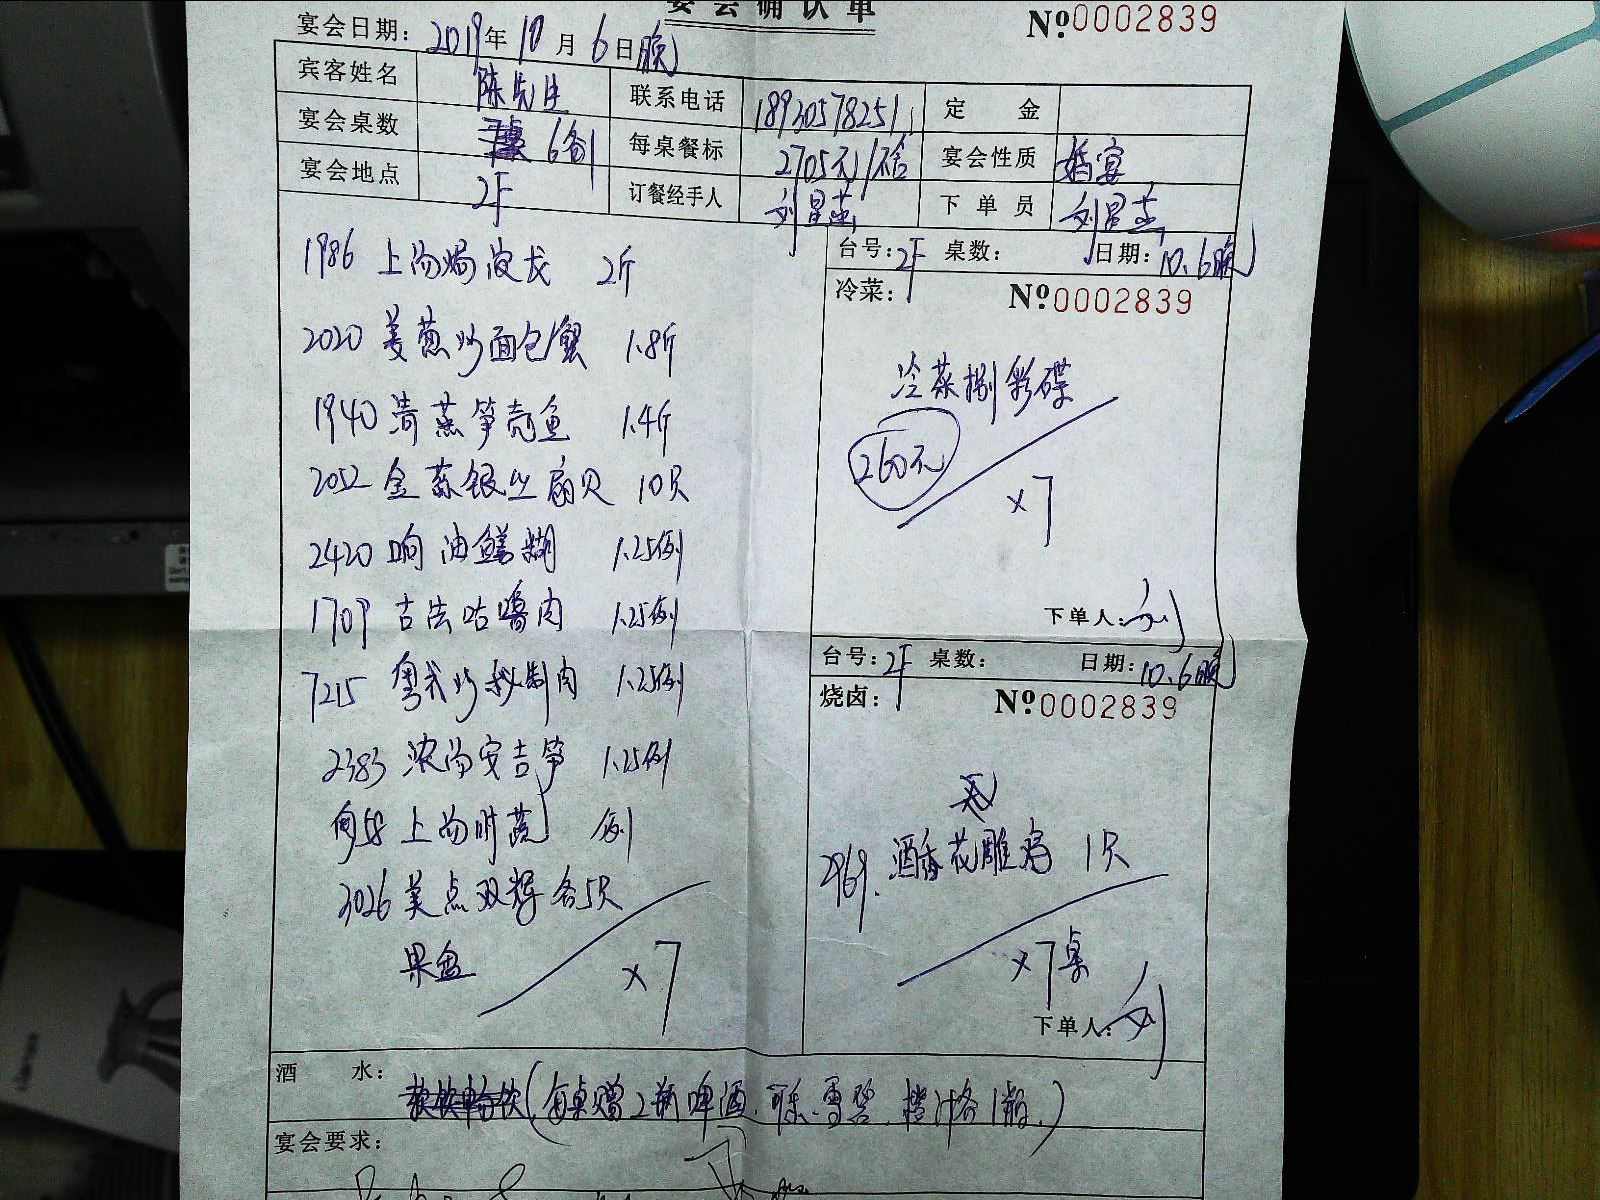 宴会确认单
№0002839
宴会日期: 2019年10月6日(晚)
宾客姓名 陈先生 联系电话 18930578251 定金
宴会桌数 6备1 每桌餐标 2705元/不含 宴会性质 婚宴
宴会地点 2F 订餐经手人 下单员
1986 上汤焗波龙 2斤
2020 姜葱炒面包蟹 1.8斤
1940 清蒸笋壳鱼 1.4斤
2052 金蒜银丝扇贝 10只
2420 响油鳝糊 1.25例
1709 古法咕噜肉 1.25例
7215 粤式炒秘制肉 1.25例
2383 浓汤安吉笋 1.25例
上汤时蔬 例
3026 美点双辉 各5只
果盘
×7
台号: 2F 桌数: 日期: 10.6晚
冷菜:
№0002839
冷菜捌彩碟
260元
×7
下单人: 刘
台号: 2F 桌数: 日期: 10.6晚
烧卤:
№0002839
2969. 酒香花雕鸡 1只
×7桌
下单人: 刘
酒水: (每桌赠2瓶啤酒、可乐、雪碧、橙汁各1瓶.)
宴会要求: